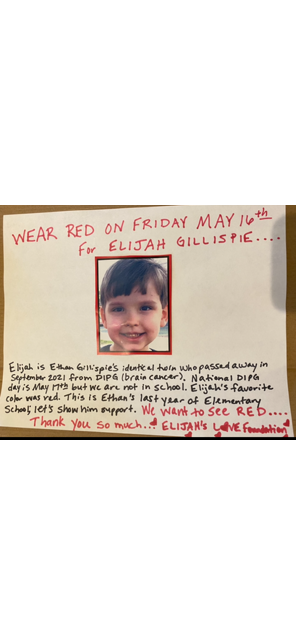 WEAR RED ON FRIDAY MAY 16th
For ELIJAH GILLISPIE....
Elijah is Ethan Gillispie's identical twin who passed away in
September 2021 from DIPG (brain cancer). National DIPG
day is May 17th but we are not in school. Elijah's favorite
color was red. This is Ethan's last year of Elementary
School, let's show him support. We want to see RED....
Thank you so much... ELIJAH'S LOVE Foundation